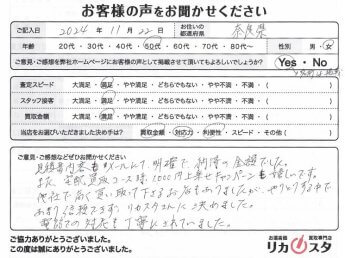 お客様の声をお聞かせください
ご記入日 2024年 11月 22日 お住いの都道府県 奈良県
年齢 20代・30代・40代・50代・60代・70代・80代～ 性別 男・女
ご意見・ご感想など弊社ホームページにお客様の声として掲載させて頂いてもよろしいでしょうか? Yes・No
査定スピード 大満足・満足・どちらでもない・やや不満・不満 ( )
スタッフ接客 大満足・満足・どちらでもない・やや不満・不満 ( )
買取金額 大満足・満足・どちらでもない・やや不満・不満 ( )
当店をお選びいただきました決め手は? 買取金額・対応力・利便性・スピード・その他 ( )
ご意見・ご感想などぜひお聞かせください
見積書内容もメールにて、明確で納得の金額でした。
また、宅配買取コース時、1,000円上乗せキャンペーンも嬉しいです。
他社で高く買い取って下さるお店もありましたが、やりとりする中で
あまり信頼できず、リカスタさんに決めました。
電話での対応も丁寧にされていました。
ご協力ありがとうございました。
この度は誠にありがとうございました。
お酒高価買取専門店
リカスタ